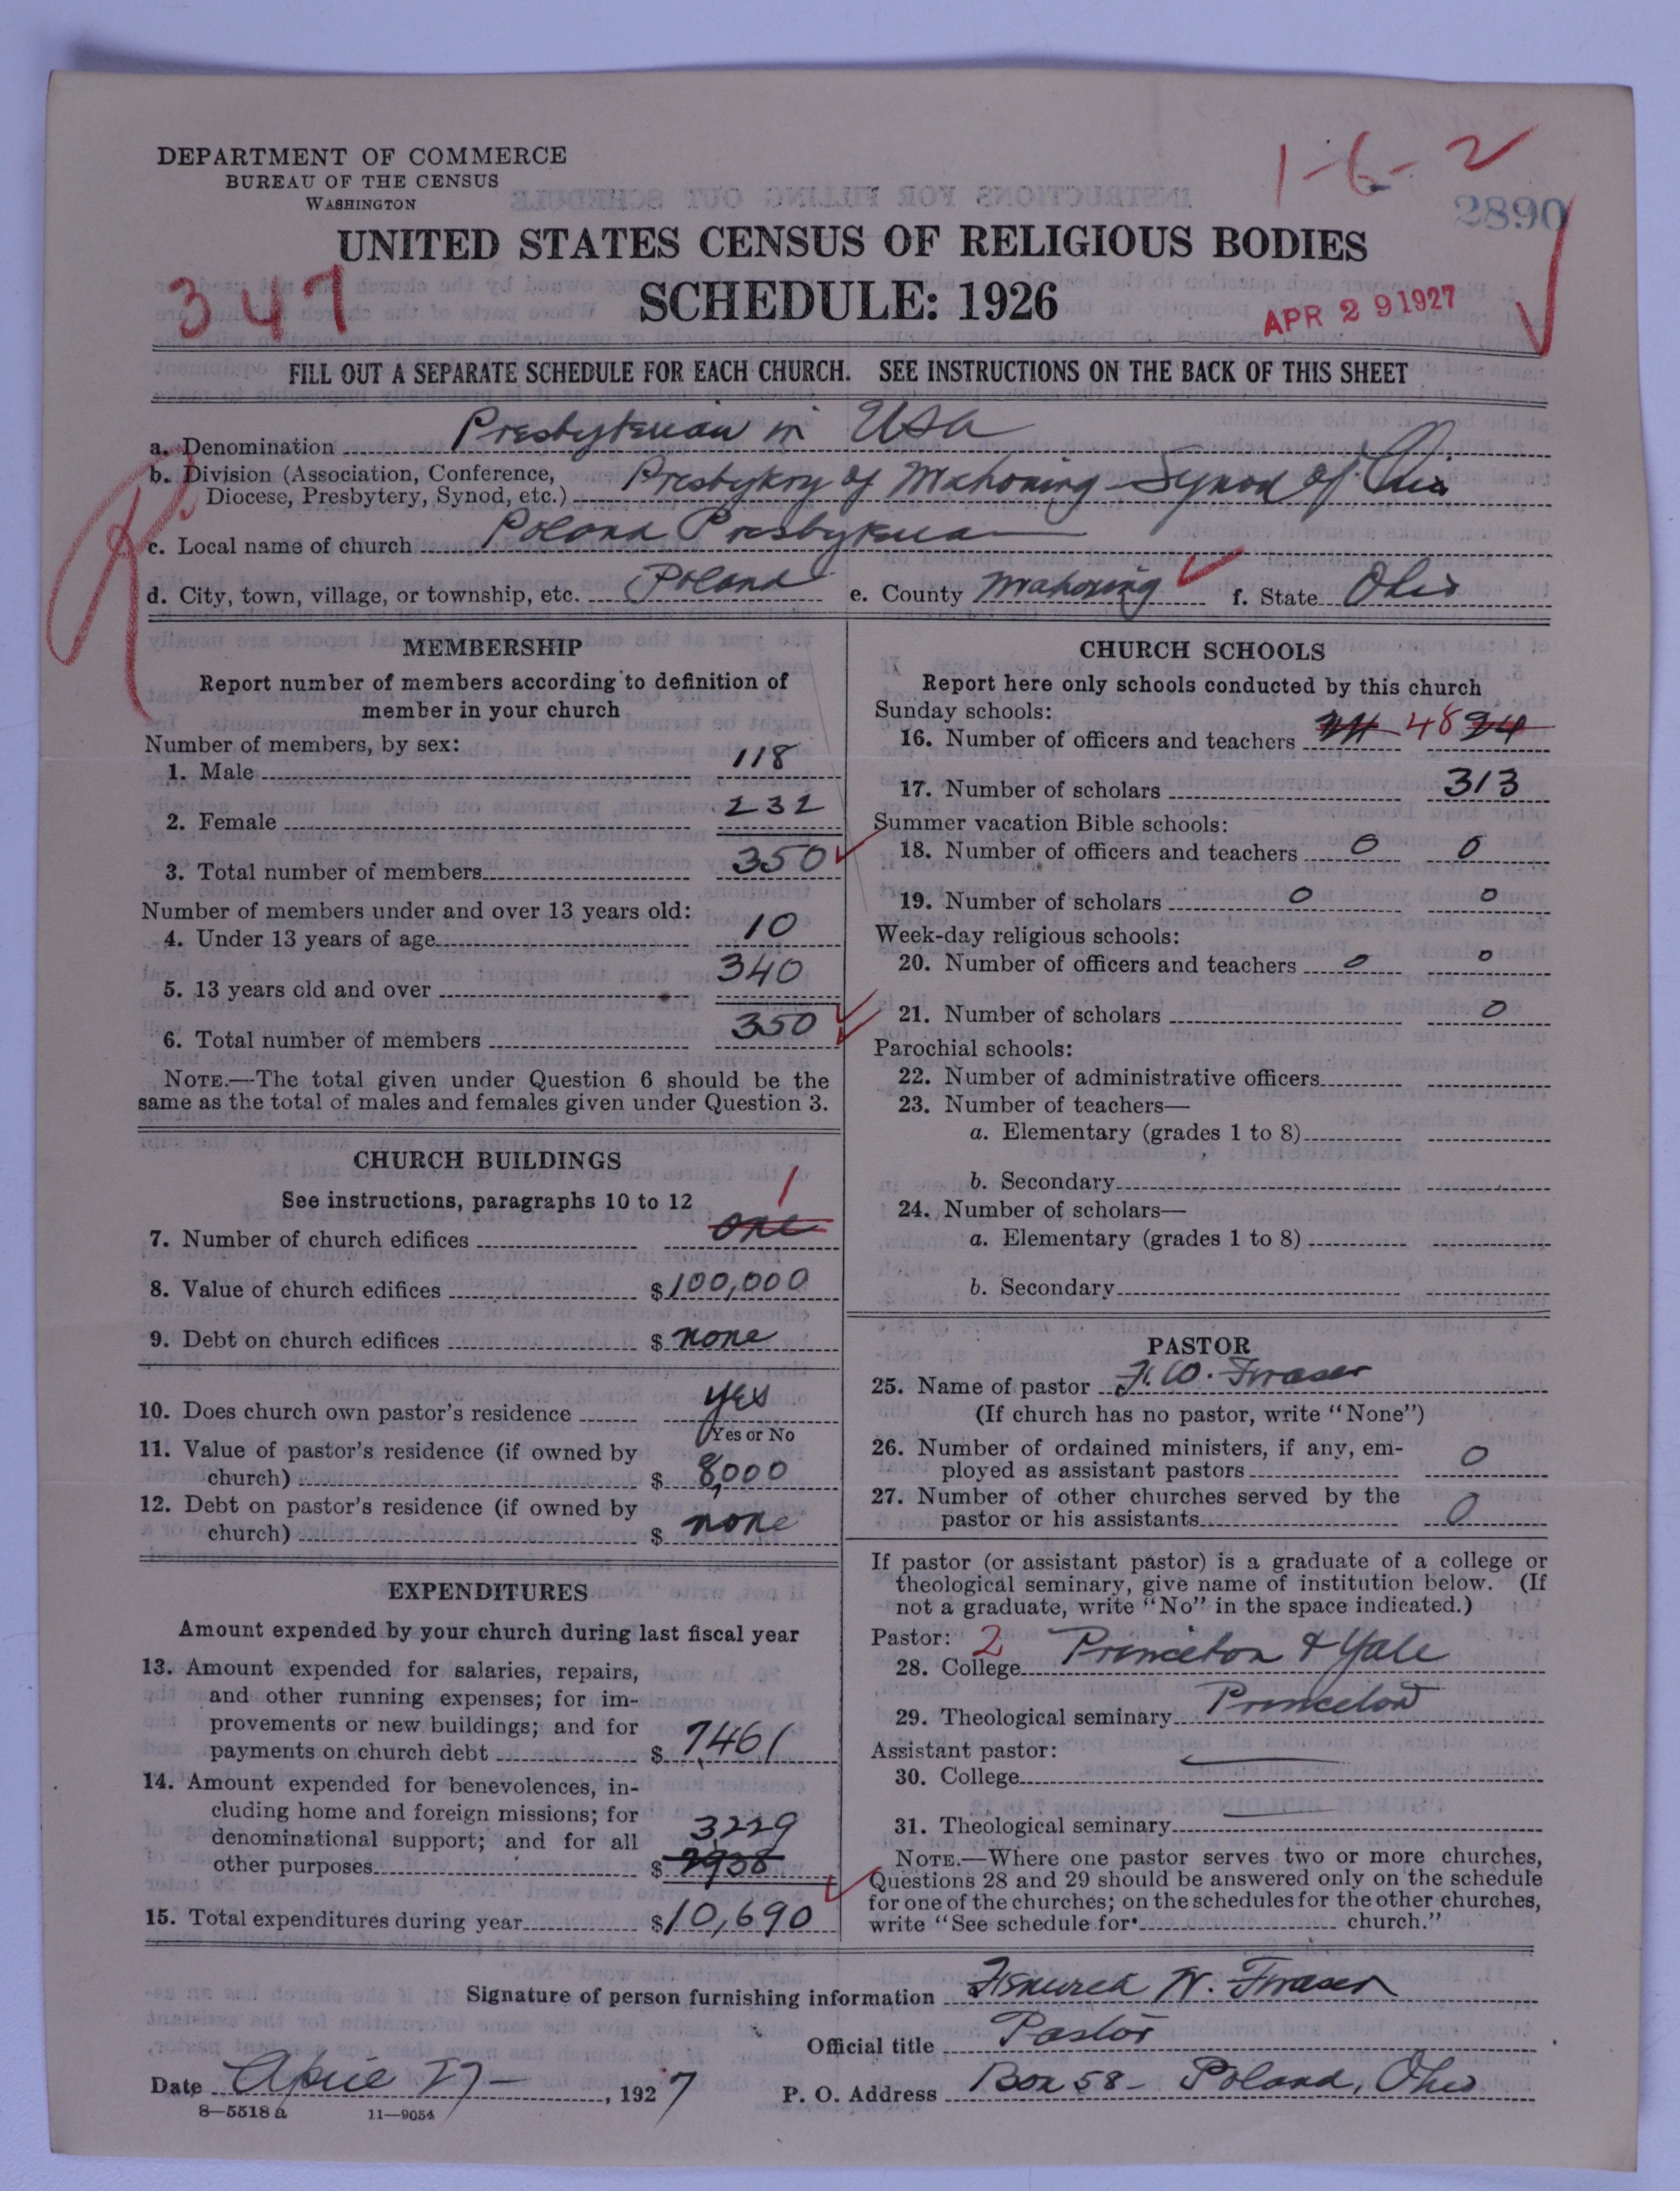 DEPARTMENT OF COMMERCE
BUREAU OF THE CENSUS
WASHINGTON
1-6-2
2890
UNITED STATES CENSUS OF RELIGIOUS BODIES
347
SCHEDULE: 1926
APR 29 1927
FILL OUT A SEPARATE SCHEDULE FOR EACH CHURCH. SEE INSTRUCTIONS ON THE BACK OF THIS SHEET
a. Denomination Presbyterian in USA
b. Division (Association, Conference,
Diocese, Presbytery, Synod, etc.) Presbytery of Mahoning - Synod of Ohio
c. Local name of church Poland Presbyterian
d. City, town, village, or township, etc. Poland e. County Mahoning f. State Ohio
MEMBERSHIP
Report number of members according to definition of
member in your church
Number of members, by sex:
1. Male 118
2. Female 232
3. Total number of members 350
Number of members under and over 13 years old:
4. Under 13 years of age 10
5. 13 years old and over 340
6. Total number of members 350
NOTE.—The total given under Question 6 should be the
same as the total of males and females given under Question 3.
CHURCH BUILDINGS
See instructions, paragraphs 10 to 12
1
7. Number of church edifices one
8. Value of church edifices $100,000
9. Debt on church edifices $ none
10. Does church own pastor's residence yes
Yes or No
11. Value of pastor's residence (if owned by
church) $ 8,000
12. Debt on pastor's residence (if owned by
church) $ none
EXPENDITURES
Amount expended by your church during last fiscal year
13. Amount expended for salaries, repairs,
and other running expenses; for im-
provements or new buildings; and for
payments on church debt $ 7,461
14. Amount expended for benevolences, in-
cluding home and foreign missions; for
denominational support; and for all 3,229
other purposes $ 2938
15. Total expenditures during year $10,690
CHURCH SCHOOLS
Report here only schools conducted by this church
Sunday schools:
16. Number of officers and teachers 48
17. Number of scholars 313
Summer vacation Bible schools:
18. Number of officers and teachers 0 0
19. Number of scholars 0 0
Week-day religious schools:
20. Number of officers and teachers 0 0
21. Number of scholars 0
Parochial schools:
22. Number of administrative officers
23. Number of teachers—
a. Elementary (grades 1 to 8)
b. Secondary
24. Number of scholars—
a. Elementary (grades 1 to 8)
b. Secondary
PASTOR
25. Name of pastor F. W. Fraser
(If church has no pastor, write "None")
26. Number of ordained ministers, if any, em-
ployed as assistant pastors 0
27. Number of other churches served by the
pastor or his assistants 0
If pastor (or assistant pastor) is a graduate of a college or
theological seminary, give name of institution below. (If
not a graduate, write "No" in the space indicated.)
Pastor: 2
28. College Princeton & Yale
29. Theological seminary Princeton
Assistant pastor:
30. College
31. Theological seminary
NOTE.—Where one pastor serves two or more churches,
Questions 28 and 29 should be answered only on the schedule
for one of the churches; on the schedules for the other churches,
write "See schedule for church."
Signature of person furnishing information W. Fraser
Official title Pastor
Date April 27 - , 1927 P. O. Address Box 58 - Poland, Ohio
8—5518 a 11—9054